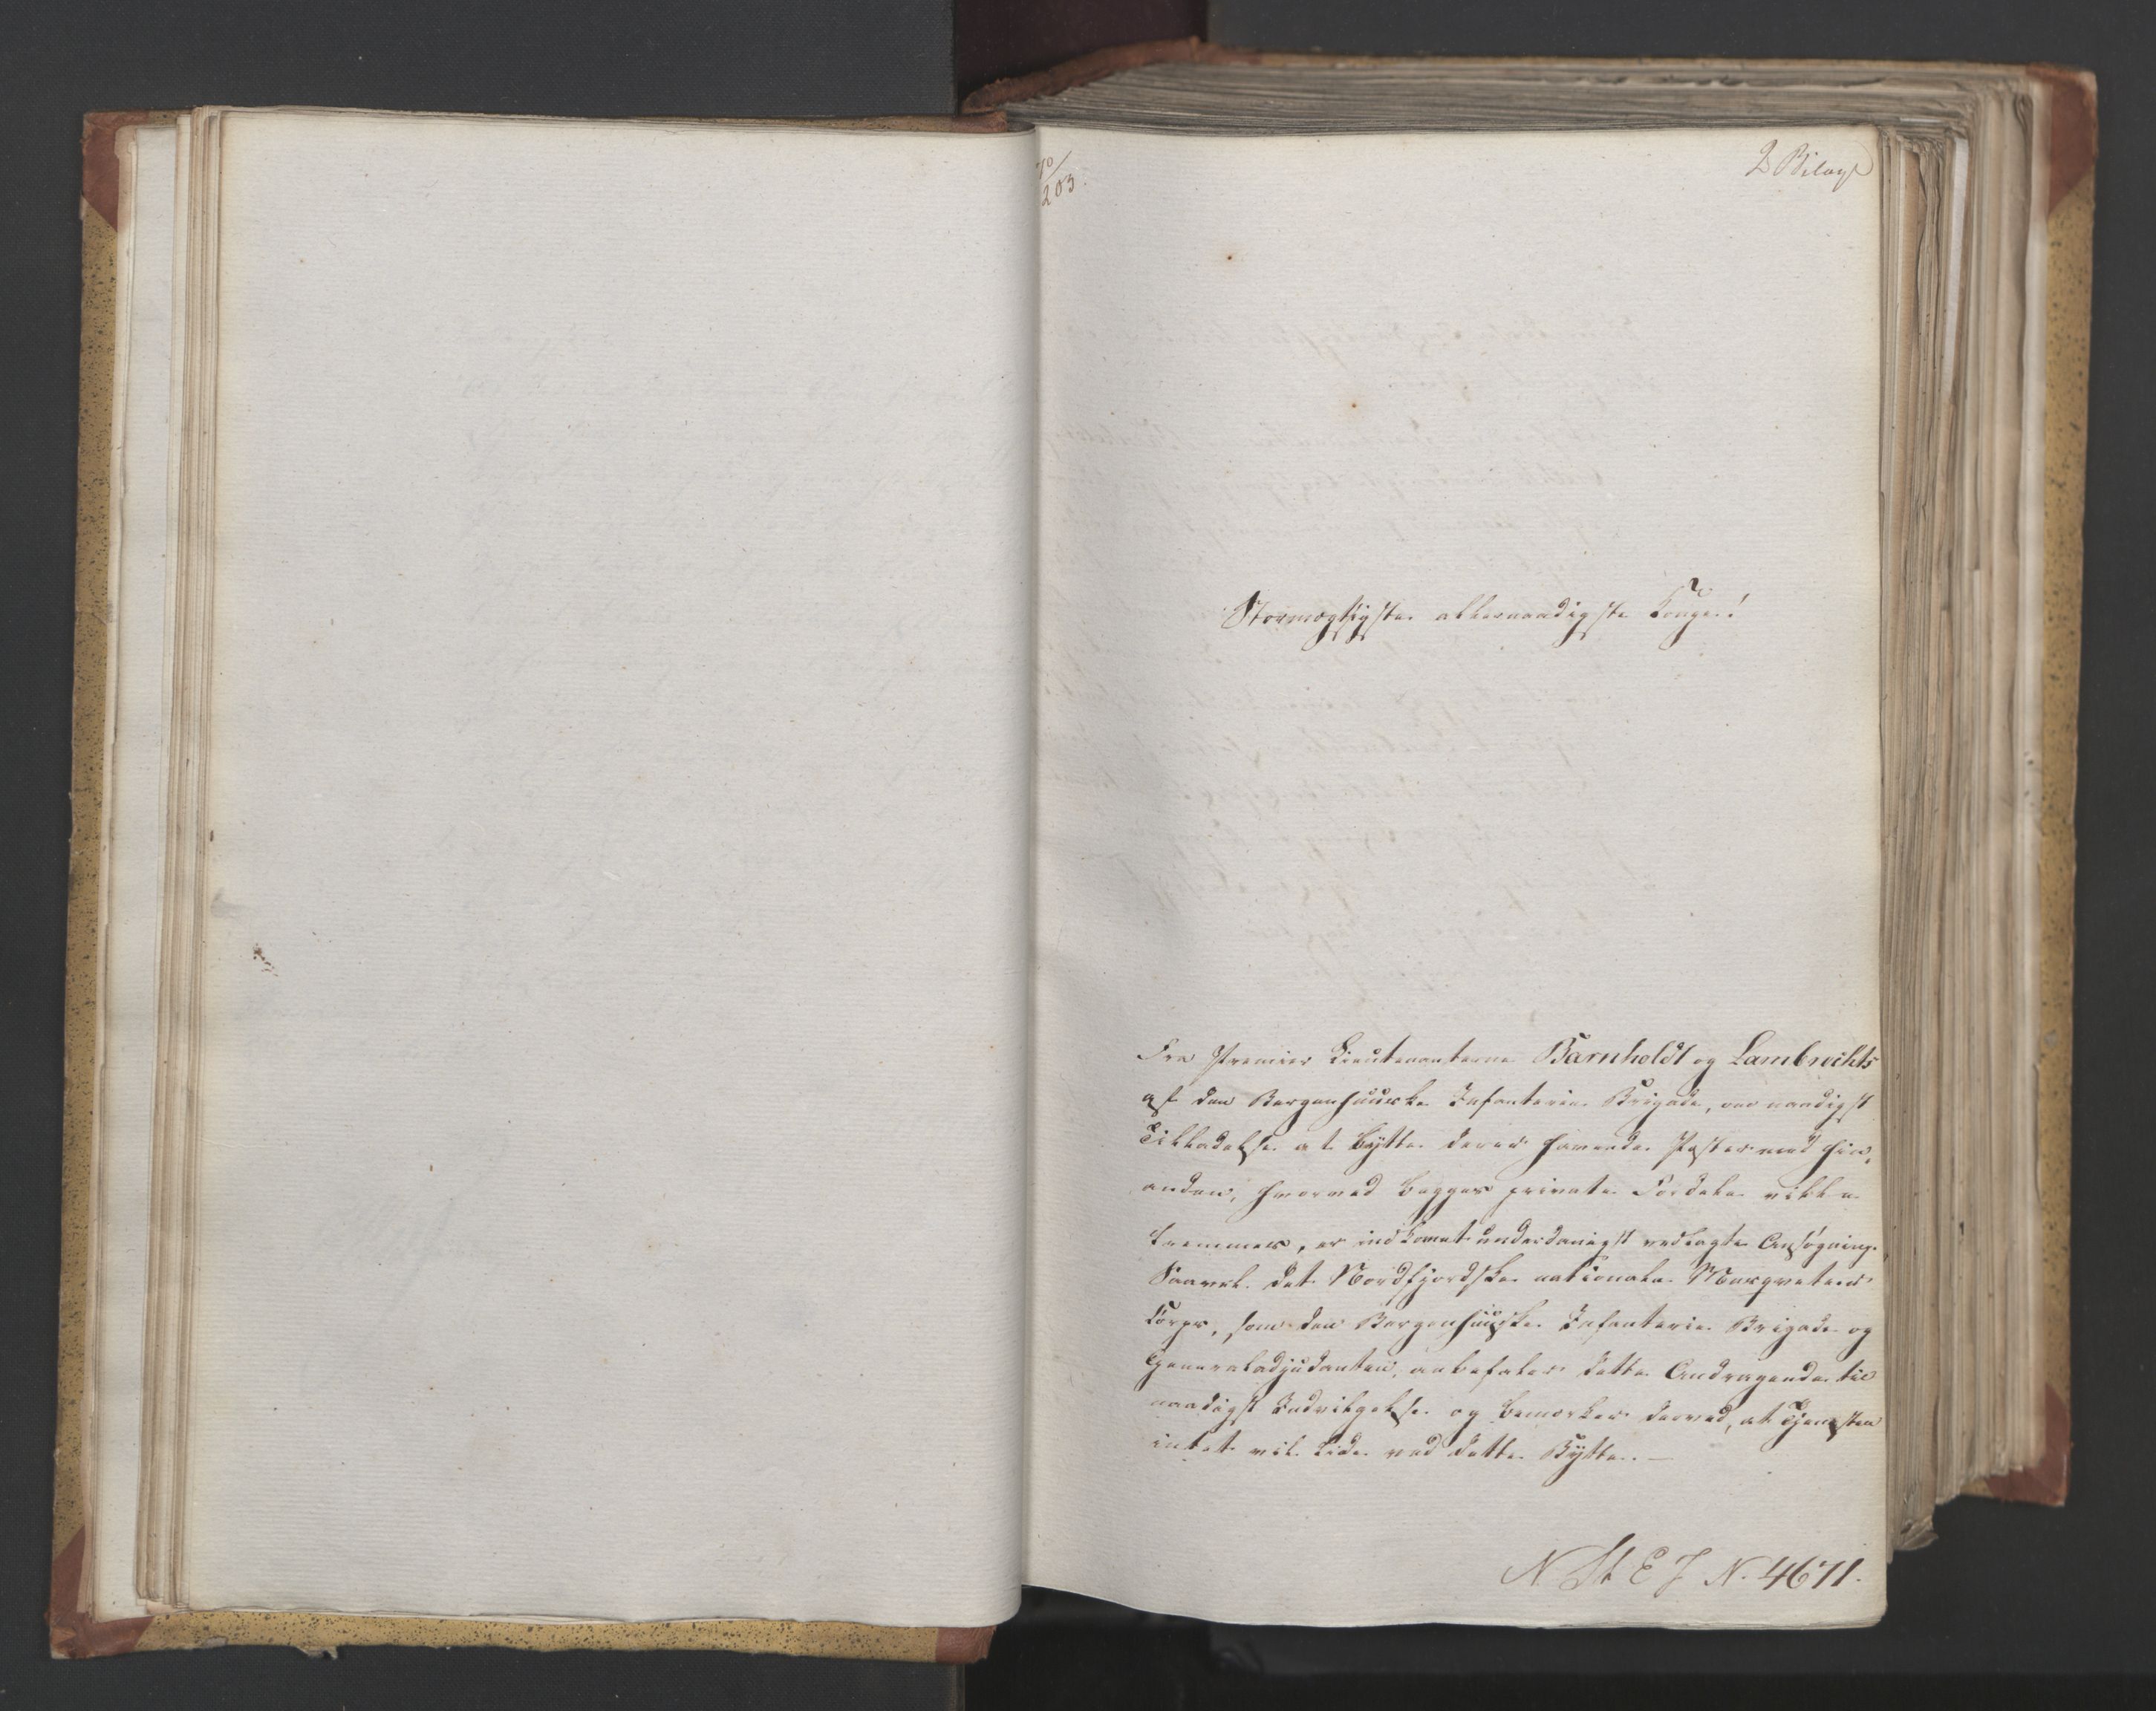 70/203.
2 Bilage
Stormægtigste allernaadigste Konge!
Fra Premier Lieutenanterne Barnholdt og Lambrechts
af den Bergenhuuske Infanterie Brigade, om naadigst
Tilladelse at bytte deres havende Poster med hin,
anden, hvorved begges private Fordele ville
fremmes, er indkomet underdanigst vedlagte Ansøgning.
Saavel det Nordfjordske nationale Musqueteer
Corps, som den Bergenhuuske Infanterie Brigade og
Generaladjudanten, anbefaler dette Andragende til
naadigst Indvilgelse og bemærker derved, at Tjenesten
intet vil lide ved dette Bytte. —
N St E J N. 4671.